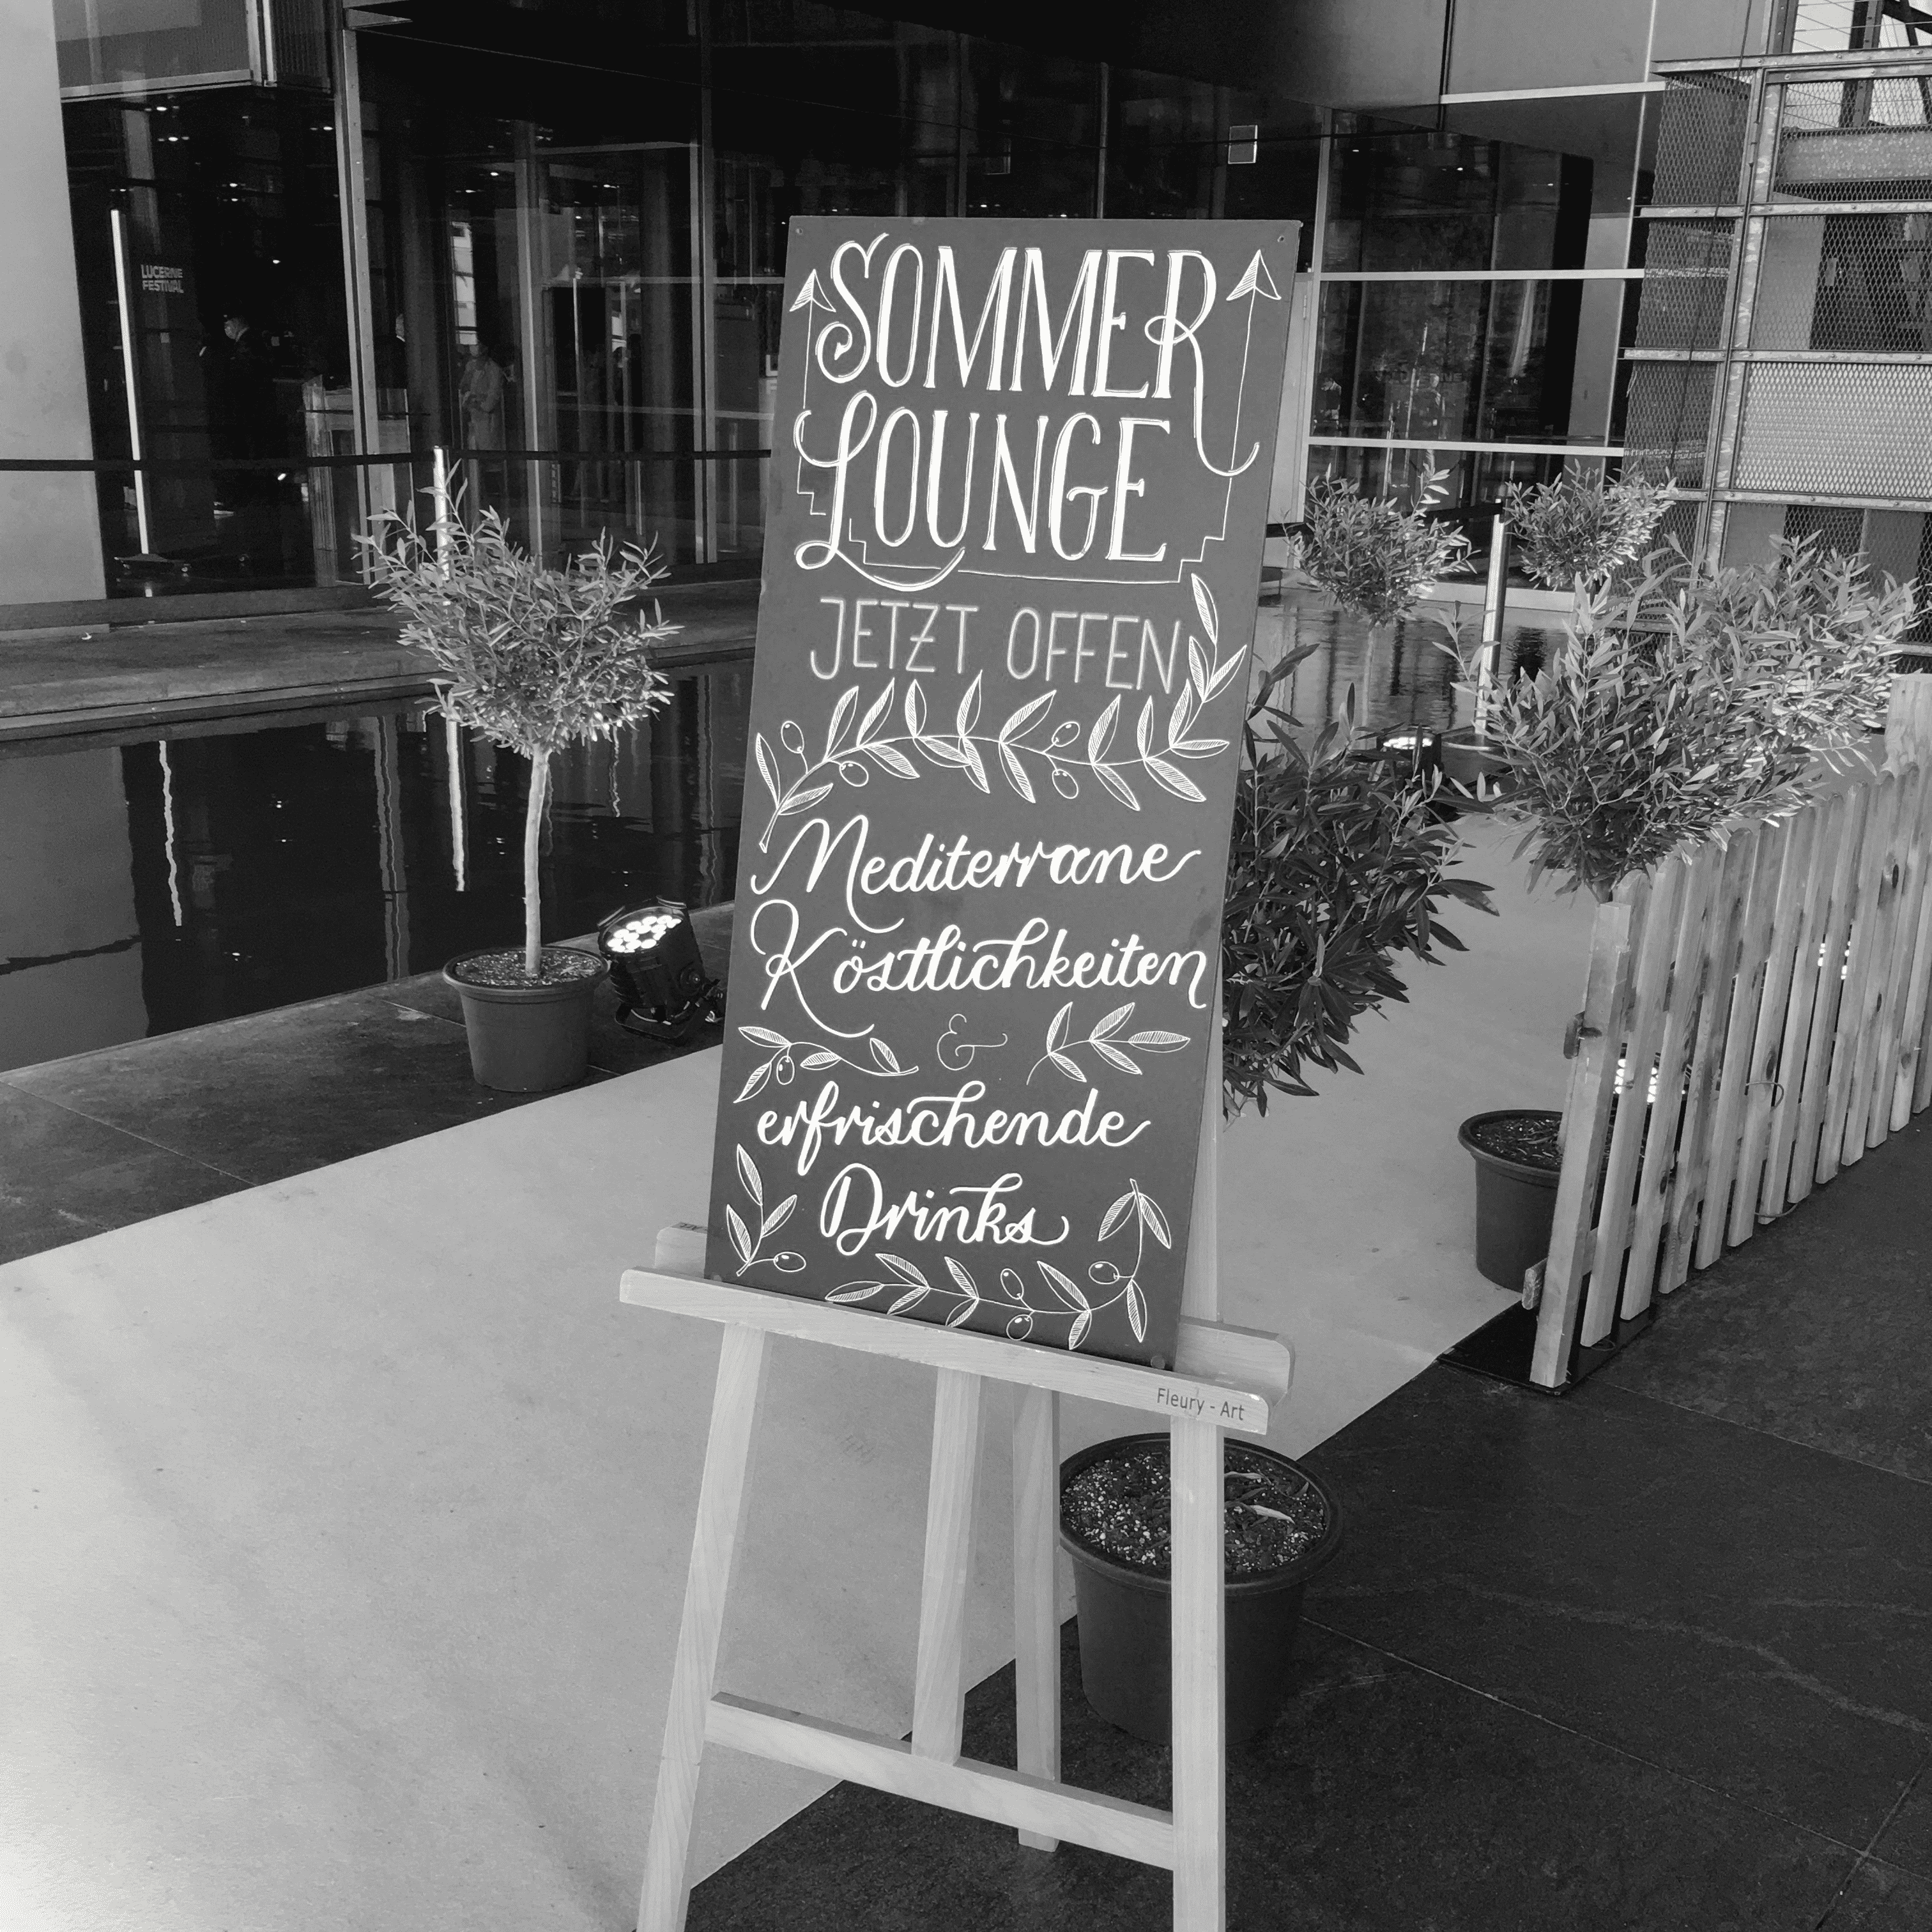 LUCERNE
FESTIVAL
SOMMER
LOUNGE
JETZT OFFEN
Mediterrane
Köstlichkeiten
&
erfrischende
Drinks
Fleury - Art